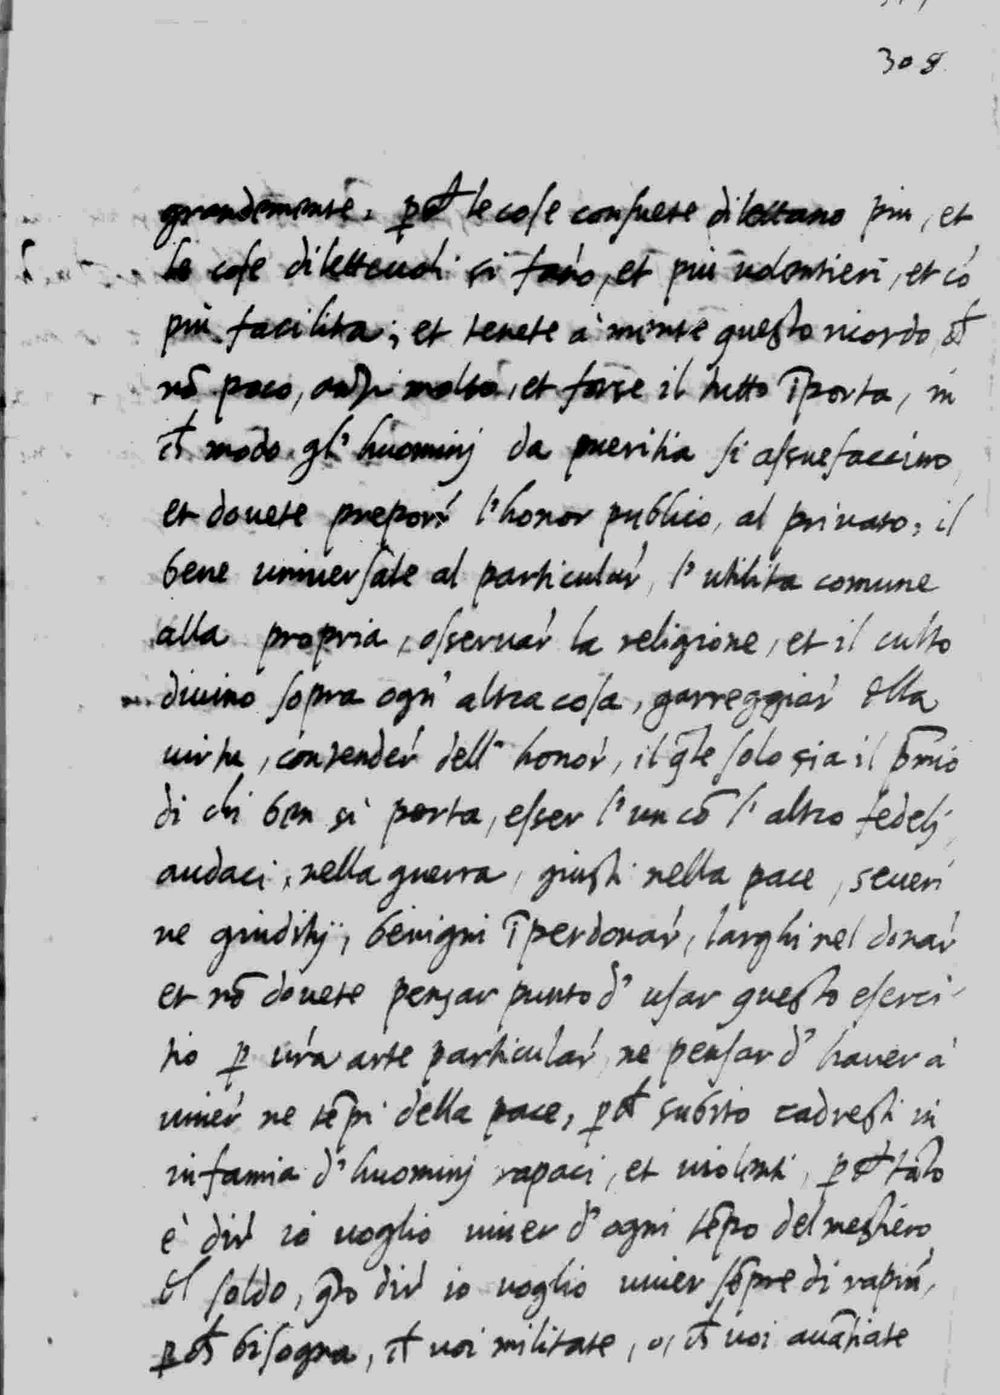 308
grandemente, p̱ch̄ le cose consuete dilettano piu, et
le cose dilettevoli si fāno, et piu volontieri, et cō
piu facilita; et tenete à mente questo ricordo, ch̄
nō poco, anzi molto, et forse il tutto īporta, in
ch̄ modo gl' huominj da pueritia si assuefaccino,
et dovete prepor' l'honor publico, al privato, il
bene universale al particular', l' utilita comune
alla propria, osservar' la religione, et il culto
divino sopra ogn' altra cosa, garreggiar' della
virtu, contender' dell' honor', il qle solo sia il p̄mio
di chi ben si porta, esser l'un cō l' altro fedelj,
audaci, nella guerra, giusti nella pace, severi
ne giuditij, benigni ī perdonar', larghi nel donar'
et nō dovete pensar punto d' usar questo eserci-
tio p̱ vr̄a arte particular', ne pensar d' haver à
viver' ne tēpi della pace, p̱ch̄ subito cadresti in
infamia d' huominj rapaci, et violenti, p̱ch̄ tāto
è dir' io voglio viver d' ogni tēpo del mestiero
del soldo, qto dir' io voglio viver sēpre di rapin',
p̱ch̄ bisogna, ch̄ voi militate, o, ch̄ voi avāziate